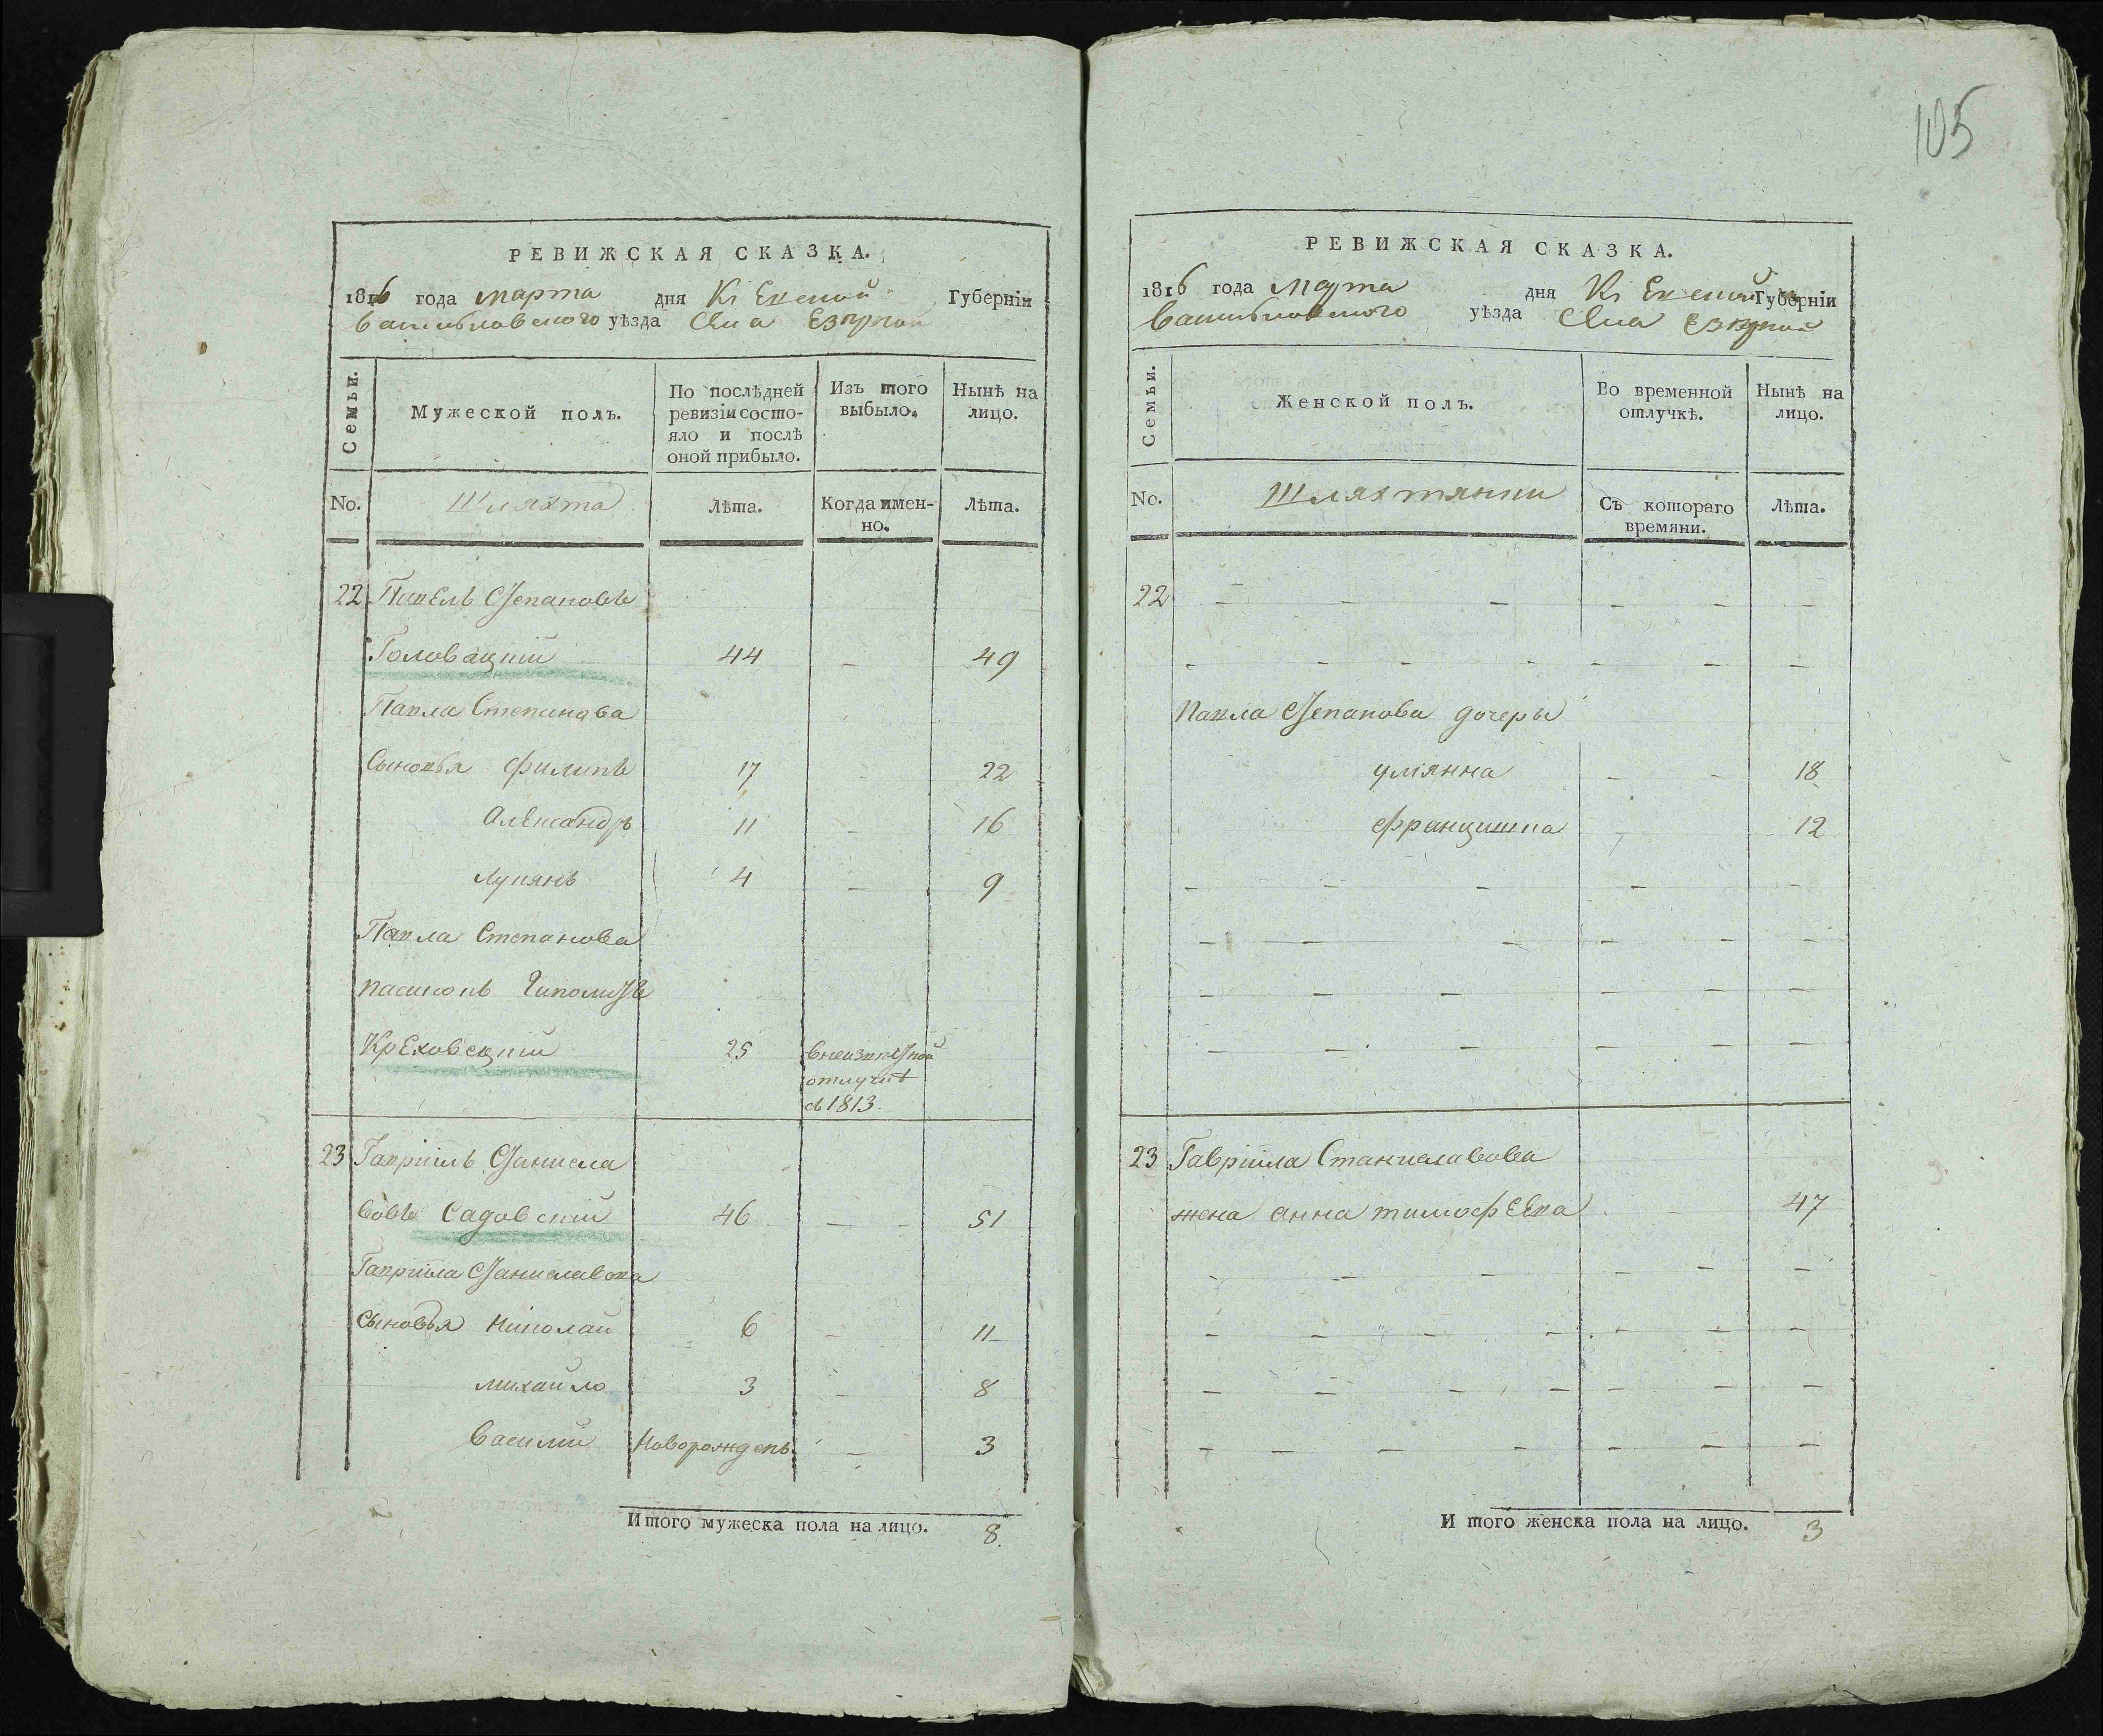 105
РЕВИЖСКАЯ СКАЗКА.
1816 года марта дня Кіевской Губерніи
Васильковского уѣзда села Езерной
Семьи.
Мужеской полъ.
По послѣдней ревизіи состо-
яло и послѣ
оной прибыло.
Изъ того выбыло.
Нынѣ на лицо.
No. Шляхта Лѣта. Когда имен-
но.
Лѣта.
22 Павелъ Степановъ
Головацкій 44 - 49
Павла Степанова
Сыновья Филипъ 17 - 22
Александръ 11 - 16
Лукянъ 4 - 9
Павла Степанова
пасинокъ Иполитъ
Креховецкій 25
отлучкѣ
съ 1813.
23 Гавріилъ Станисла
вовъ Садовскій 46 - - 51
Гавріила Станиславова
Сыновья Николай 6 - 11
Михайло 3 - 8
Василій Новорожденъ - 3
Итого мужеска пола на лицо. 8.
РЕВИЖСКАЯ СКАЗКА.
1816 года Марта дня Кіевской Губерніи
Васильковского уѣзда села Езерной
Семьи.
Женской полъ.
Во временной отлучкѣ.
Нынѣ на лицо.
No. Шляхтянки Съ котораго
времяни.
Лѣта.
22 - - - - - -
- - - - - - -
Павла Степанова дочеры
улiянна - - 18
францишка - 12
- - - - -
- - - - - -
- - - - - -
- - - - - -
23 Гавріила Станиславова
жена анна тимофеева 47
- - - - - -
- - - - - - -
- - - - - - -
- - - - - -
И того женска пола на лицо. 3